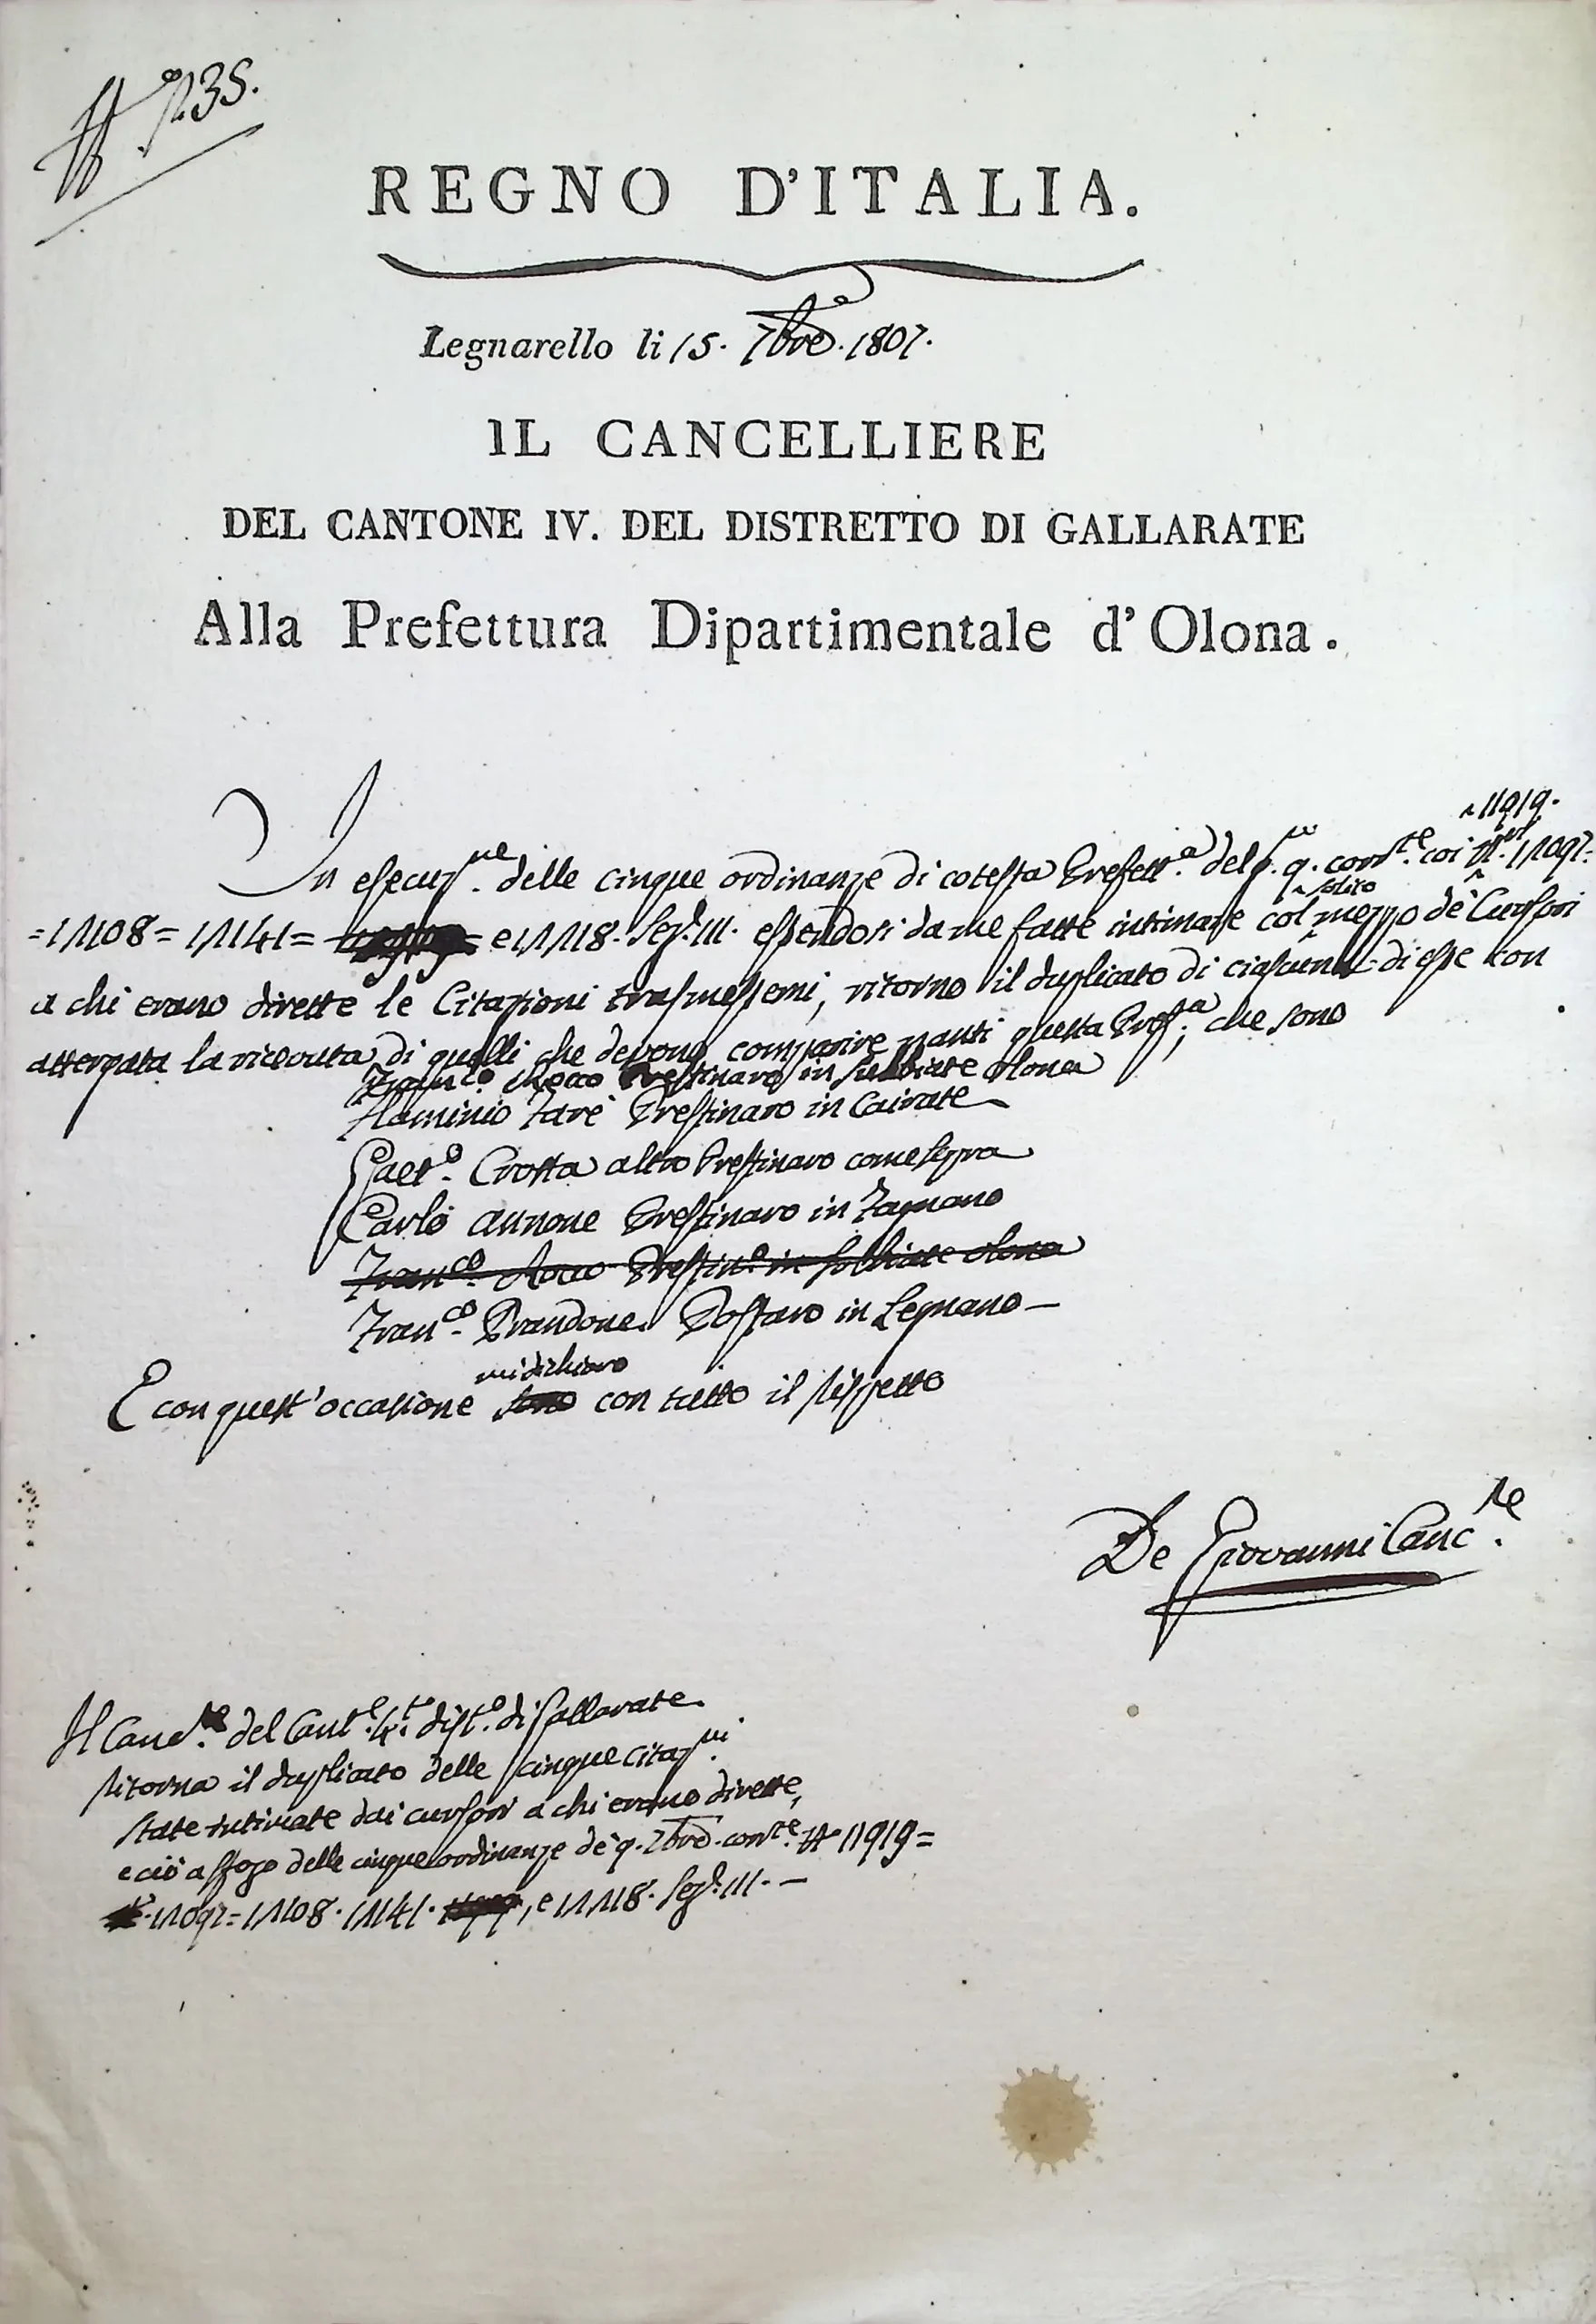 N.° 1235.
REGNO D'ITALIA.
Legnarello li 15. 7bre. 1807.
IL CANCELLIERE
DEL CANTONE IV. DEL DISTRETTO DI GALLARATE
Alla Prefettura Dipartimentale d'Olona.
11919.
In esecuz.ne delle cinque ordinanze di cotesta Prefett.a del g. 9. corr.te coi N.ri 11097.
solito
=11108= 11141= e 11118. Sez.e III. essendosi da me fatte intimare col mezzo de' Cursori
a chi erano dirette le Citazioni trasmessemi, ritorno il duplicato di ciascuna di esse con
attergata la ricevuta di quelli che devono comparire nanti questa Pref.a, che sono
Fran.co Rocco Prestinaro in Solbiate Olona
Flaminio Farè Prestinaro in Cairate
Gaet.o Crosta altro Prestinaro come sopra
Carlo Annone Prestinaro in Fagnano
Fran.co Rocco Prestin.o in Solbiate Olona
Fran.co Prandone Postaro in Legnano
mi dichiaro
E con quest'occasione sono con tutto il rispetto
De Giovanni Canc.re
Il Canc.re del Cant.e 4.to dist.o di Gallarate
ritorna il duplicato delle cinque citaz.ni
state intimate dai cursori a chi erano dirette,
e ciò a sfogo delle cinque ordinanze de' 9. 7bre. corr.te N.° 11919=
11097= 11108. 11141. , e 11118. Sez.e III.